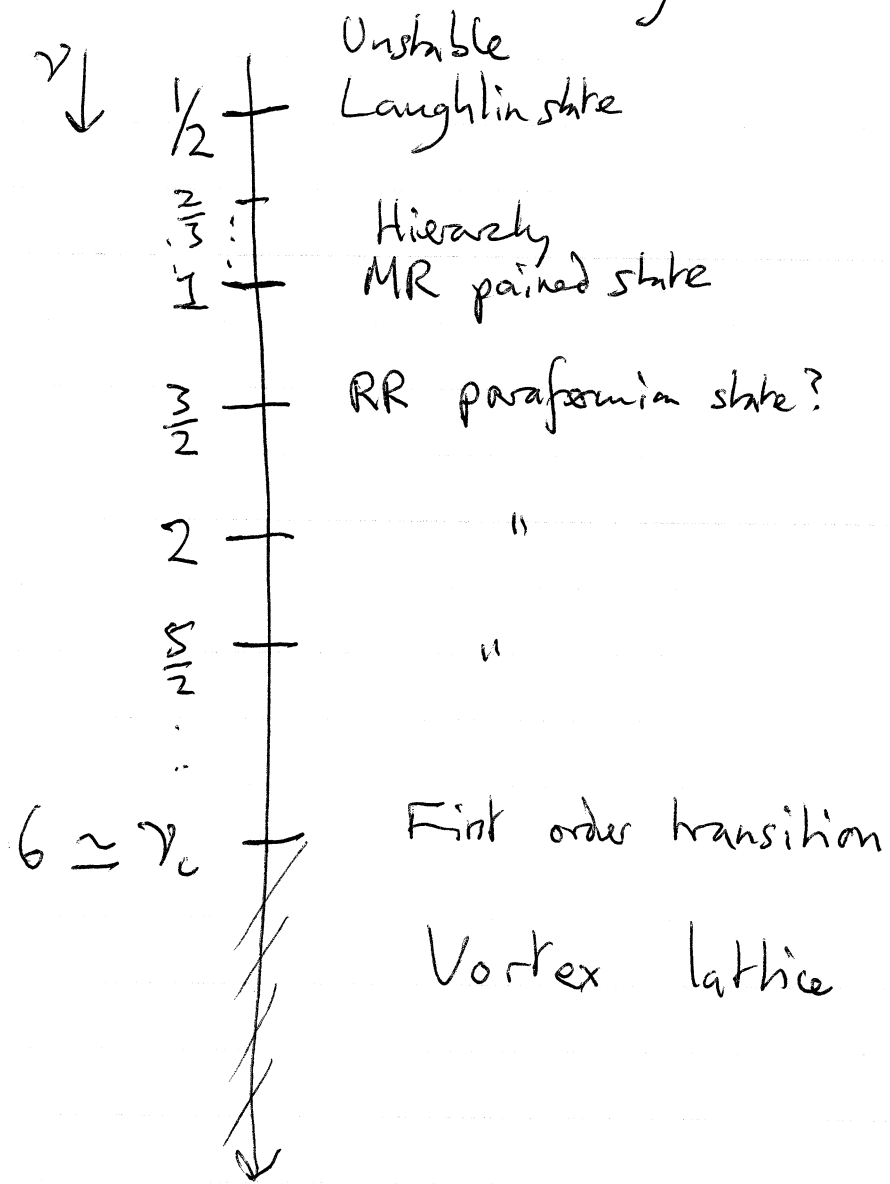 Unstable
ν
1/2 Laughlin state
2/3 Hierarchy
1 MR paired state
3/2 RR parafermion state?
2 "
5/2 "
6 ≃ νc First order transition
Vortex lattice